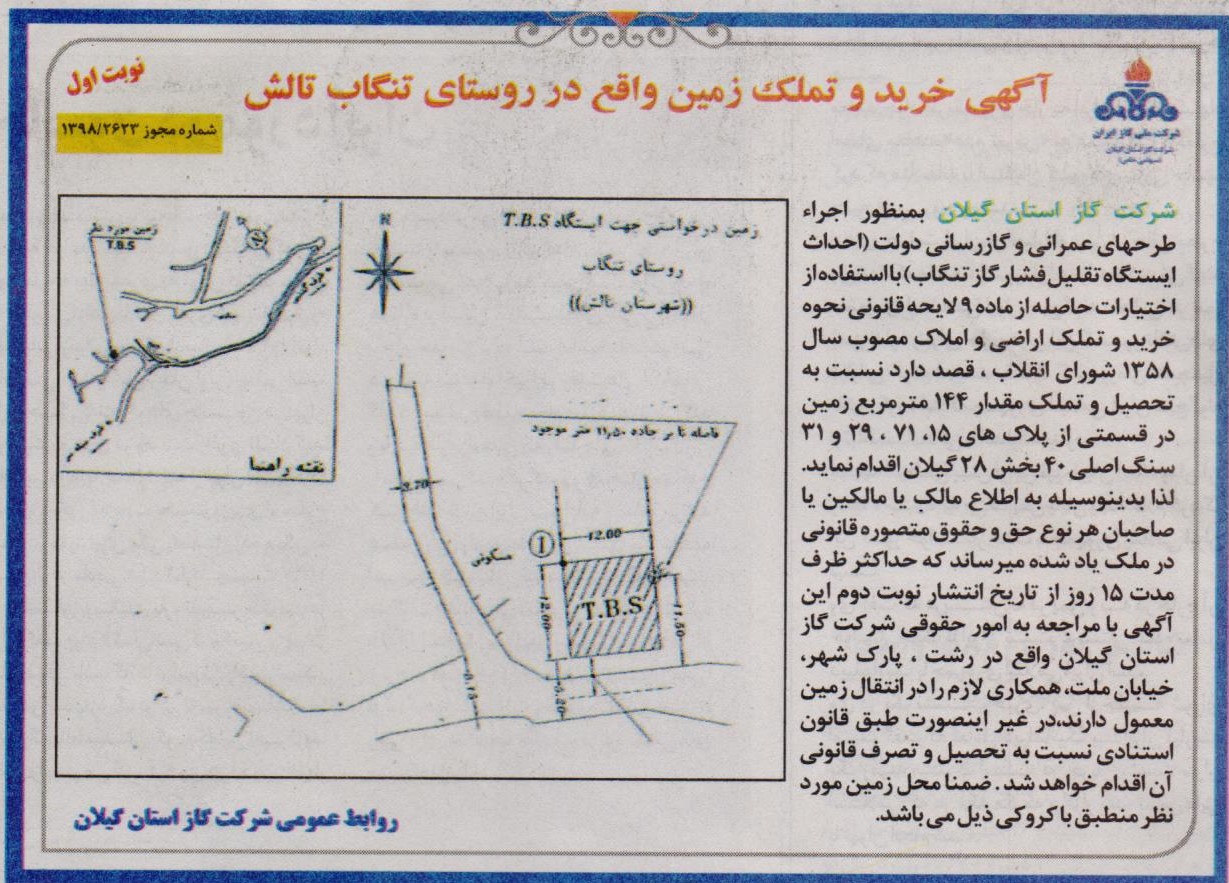 آگهی خرید و تملک زمین واقع در روستای تنگاب تالش
نوبت اول
شماره مجوز ۱۳۹۸/۲۶۲۳
شرکت ملی گاز ایران
شرکت گاز استان گیلان
(سهامی خاص)
شرکت گاز استان گیلان بمنظور اجراء
طرحهای عمرانی و گازرسانی دولت (احداث
ایستگاه تقلیل فشار گاز تنگاب) با استفاده از
اختیارات حاصله از ماده ۹ لایحه قانونی نحوه
خرید و تملک اراضی و املاک مصوب سال
۱۳۵۸ شورای انقلاب ، قصد دارد نسبت به
تحصیل و تملک مقدار ۱۴۴ مترمربع زمین
در قسمتی از پلاک های ۱۵، ۷۱ ، ۲۹ و ۳۱
سنگ اصلی ۴۰ بخش ۲۸ گیلان اقدام نماید.
لذا بدینوسیله به اطلاع مالک یا مالکین یا
صاحبان هر نوع حق و حقوق متصوره قانونی
در ملک یاد شده میرساند که حداکثر ظرف
مدت ۱۵ روز از تاریخ انتشار نوبت دوم این
آگهی با مراجعه به امور حقوقی شرکت گاز
استان گیلان واقع در رشت ، پارک شهر،
خیابان ملت، همکاری لازم را در انتقال زمین
معمول دارند،در غیر اینصورت طبق قانون
استنادی نسبت به تحصیل و تصرف قانونی
آن اقدام خواهد شد . ضمنا محل زمین مورد
نظر منطبق با کروکی ذیل می باشد.
زمین درخواستی جهت ایستگاه T.B.S
روستای تنگاب
((شهرستان تالش))
N
زمین مورد نظر
T.B.S
نقشه راهنما
فاصله تا بر جاده ۱۱٫۵۰ متر موجود
3.70
مسکونی
1
12.00
12.00
T.B.S
11.50
5.20
8.15
روابط عمومی شرکت گاز استان گیلان